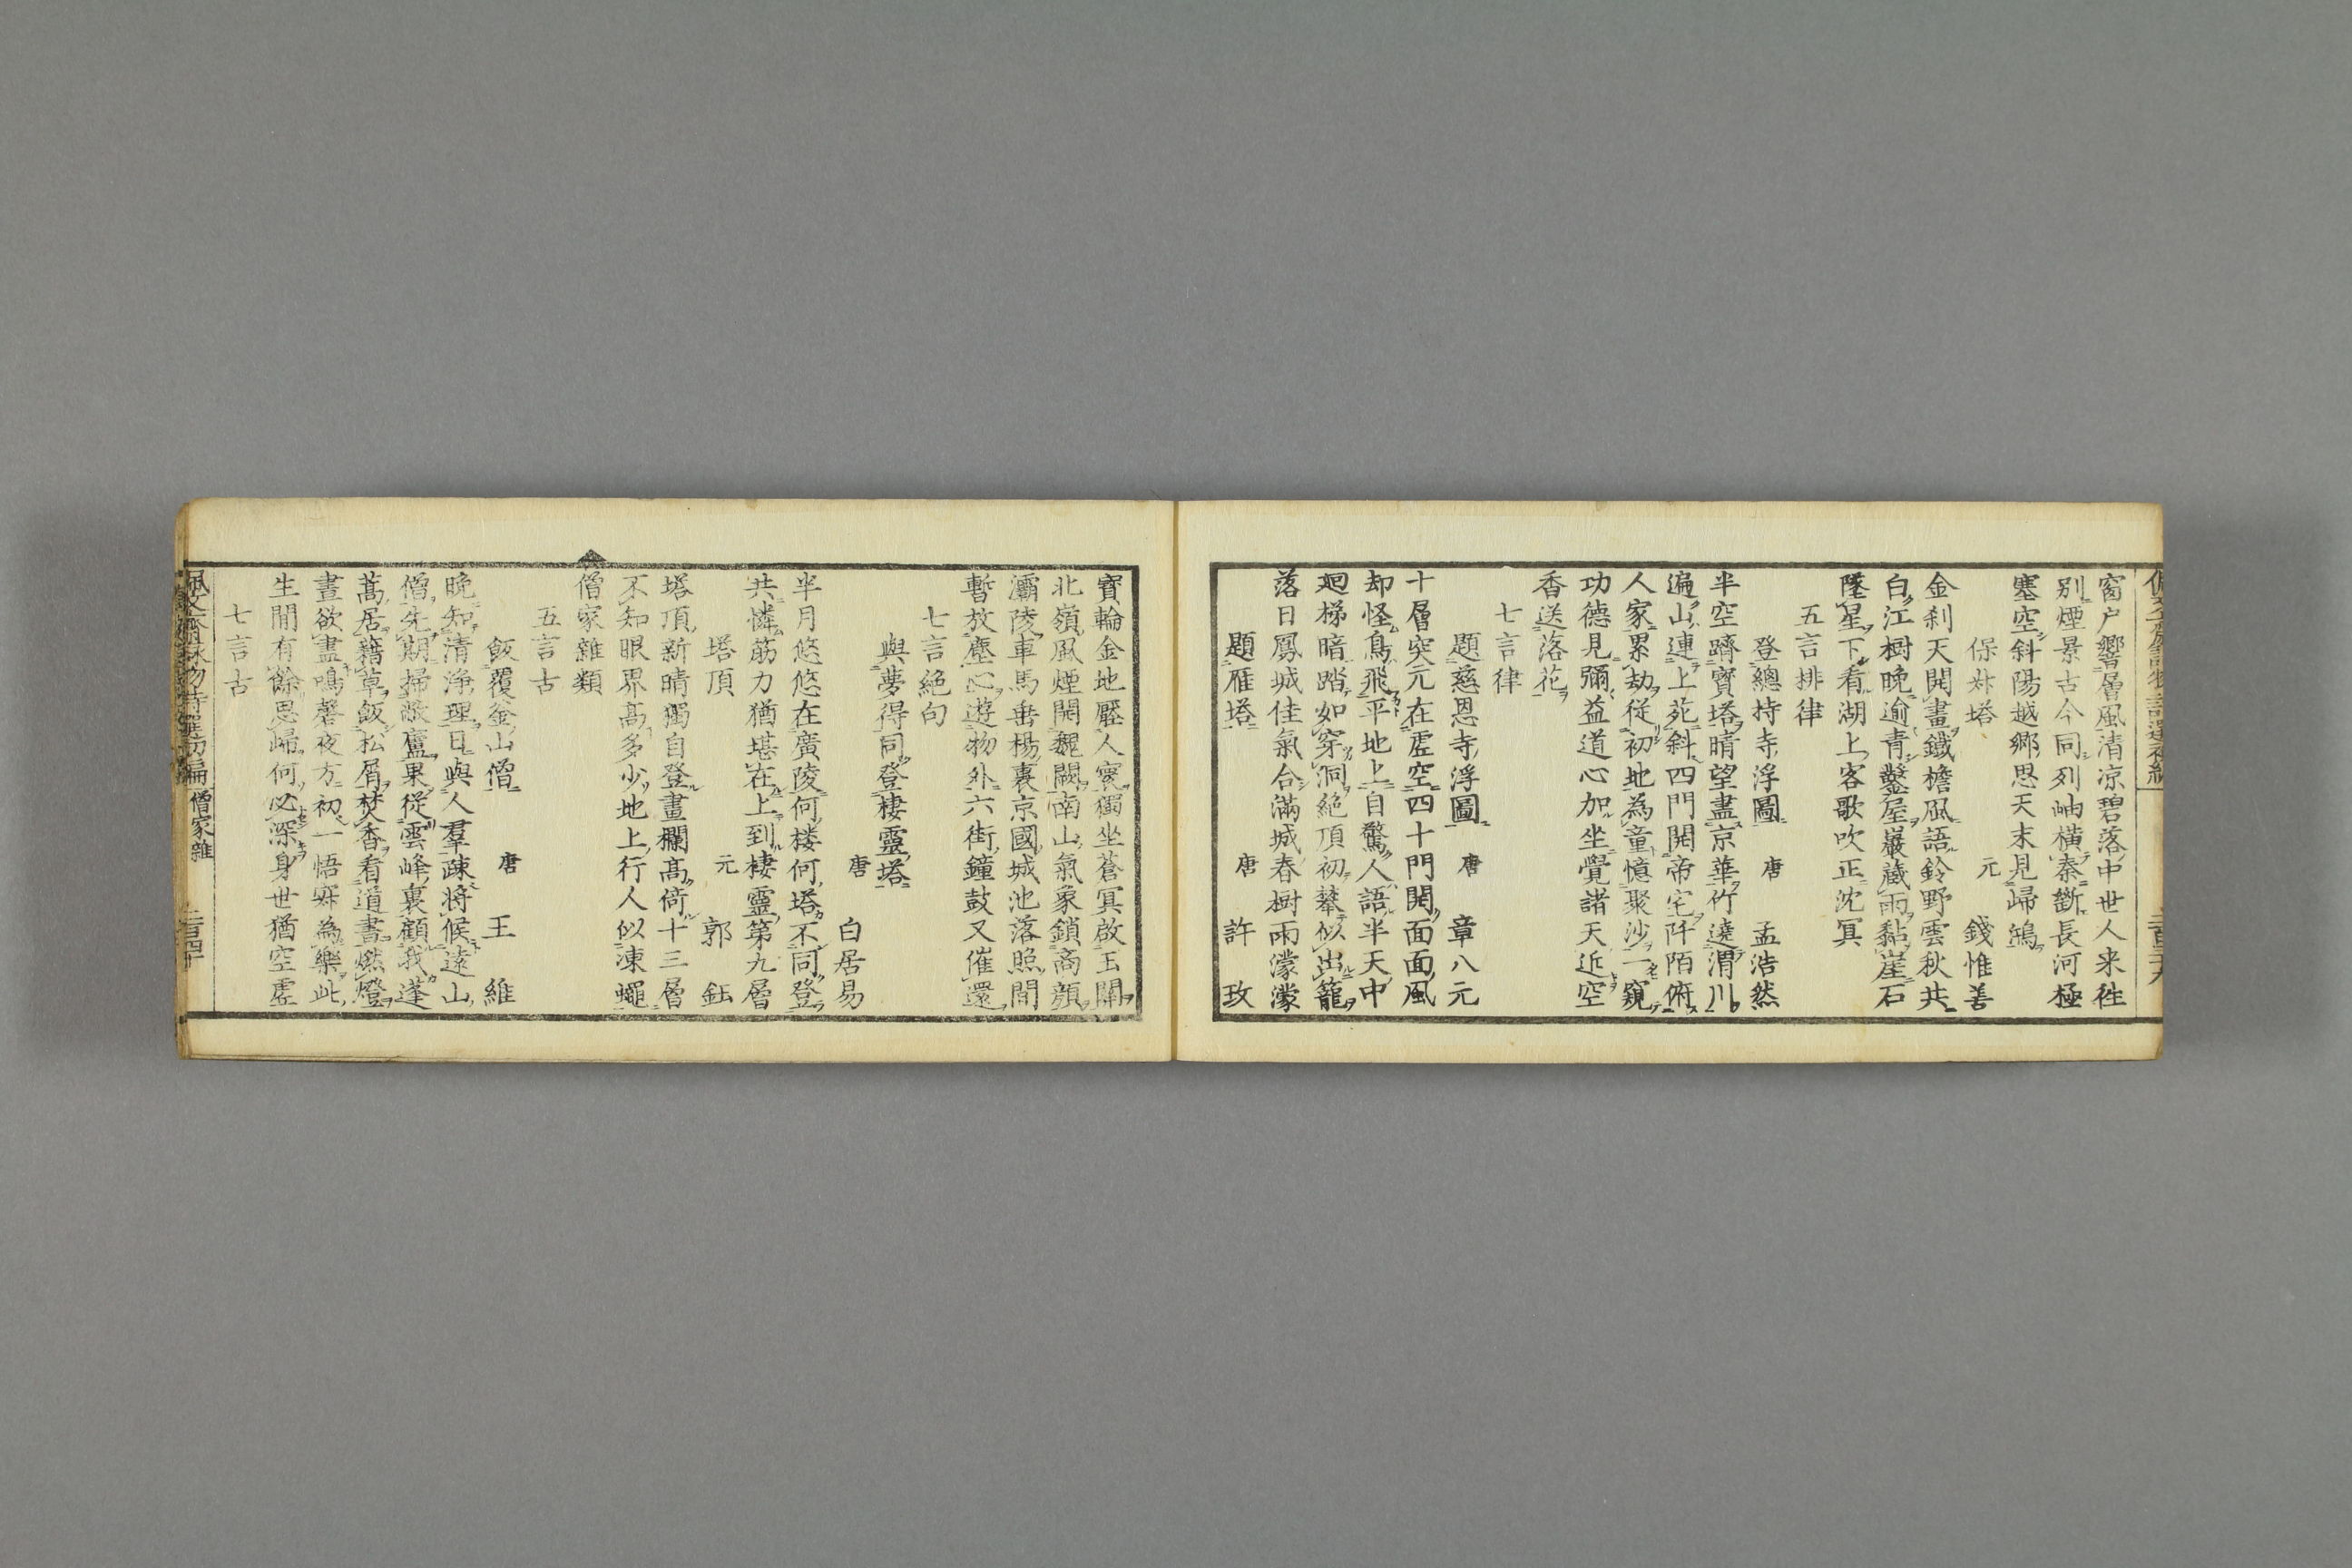 窗户響層風清凉碧落中世人来徃
别煙景古今同列岫橫秦斷長河極
塞空斜陽越鄉思天末見歸鴻
保㘽塔　元　錢惟善
金刹天開畫鐵檐風語鈴野雲秋共
白江樹晚逾青鑿屋巖藏雨黏崖石
墜星下看湖上客歌吹正沈冥
五言排律
登總持寺浮圖　唐　孟浩然
半空躋寶塔晴望盡京華竹遶渭川
遍山連上苑斜四門開帝宅阡陌俯
人家累劫從初地為童憶聚沙一窺
功德見彌益道心加坐覺諸天近空
香送落花
七言律
題慈恩寺浮圖　唐　章八元
十層突兀在虛空四十門開面面風
却怪鳥飛平地上自驚人語半天中
廻梯暗踏如穿洞絕頂初攀似出籠
落日鳳城佳氣合滿城春樹雨濛濛
題雁塔　唐　許玫
寶輪金地壓人寰獨坐蒼冥啟玉關
北嶺風煙開魏闕南山氣象鎖商顏
灞陵車馬垂楊裏京國城池落照間
暫放塵心遊物外六街鐘鼓又催還
七言絕句
與夢得同登棲靈塔
唐　白居易
半月悠悠在廣陵何樓何塔不同登
共憐筋力猶堪在上到棲靈第九層
塔頂　元　郭鈺
塔頂新晴獨自登畫欄高倚十三層
不知眼界高多少地上行人似凍蠅
僧家雜類
五言古
飯覆釜山僧　唐　王維
晚知清淨理日與人羣疎將候遠山
僧先期掃敝廬果從雲峰裏顧我蓬
蒿居藉草飯松屑焚香看道書燃燈
晝欲盡鳴磬夜方初一悟寂為樂此
生閒有餘思歸何必深身世猶空虛
七言古
僧家雜